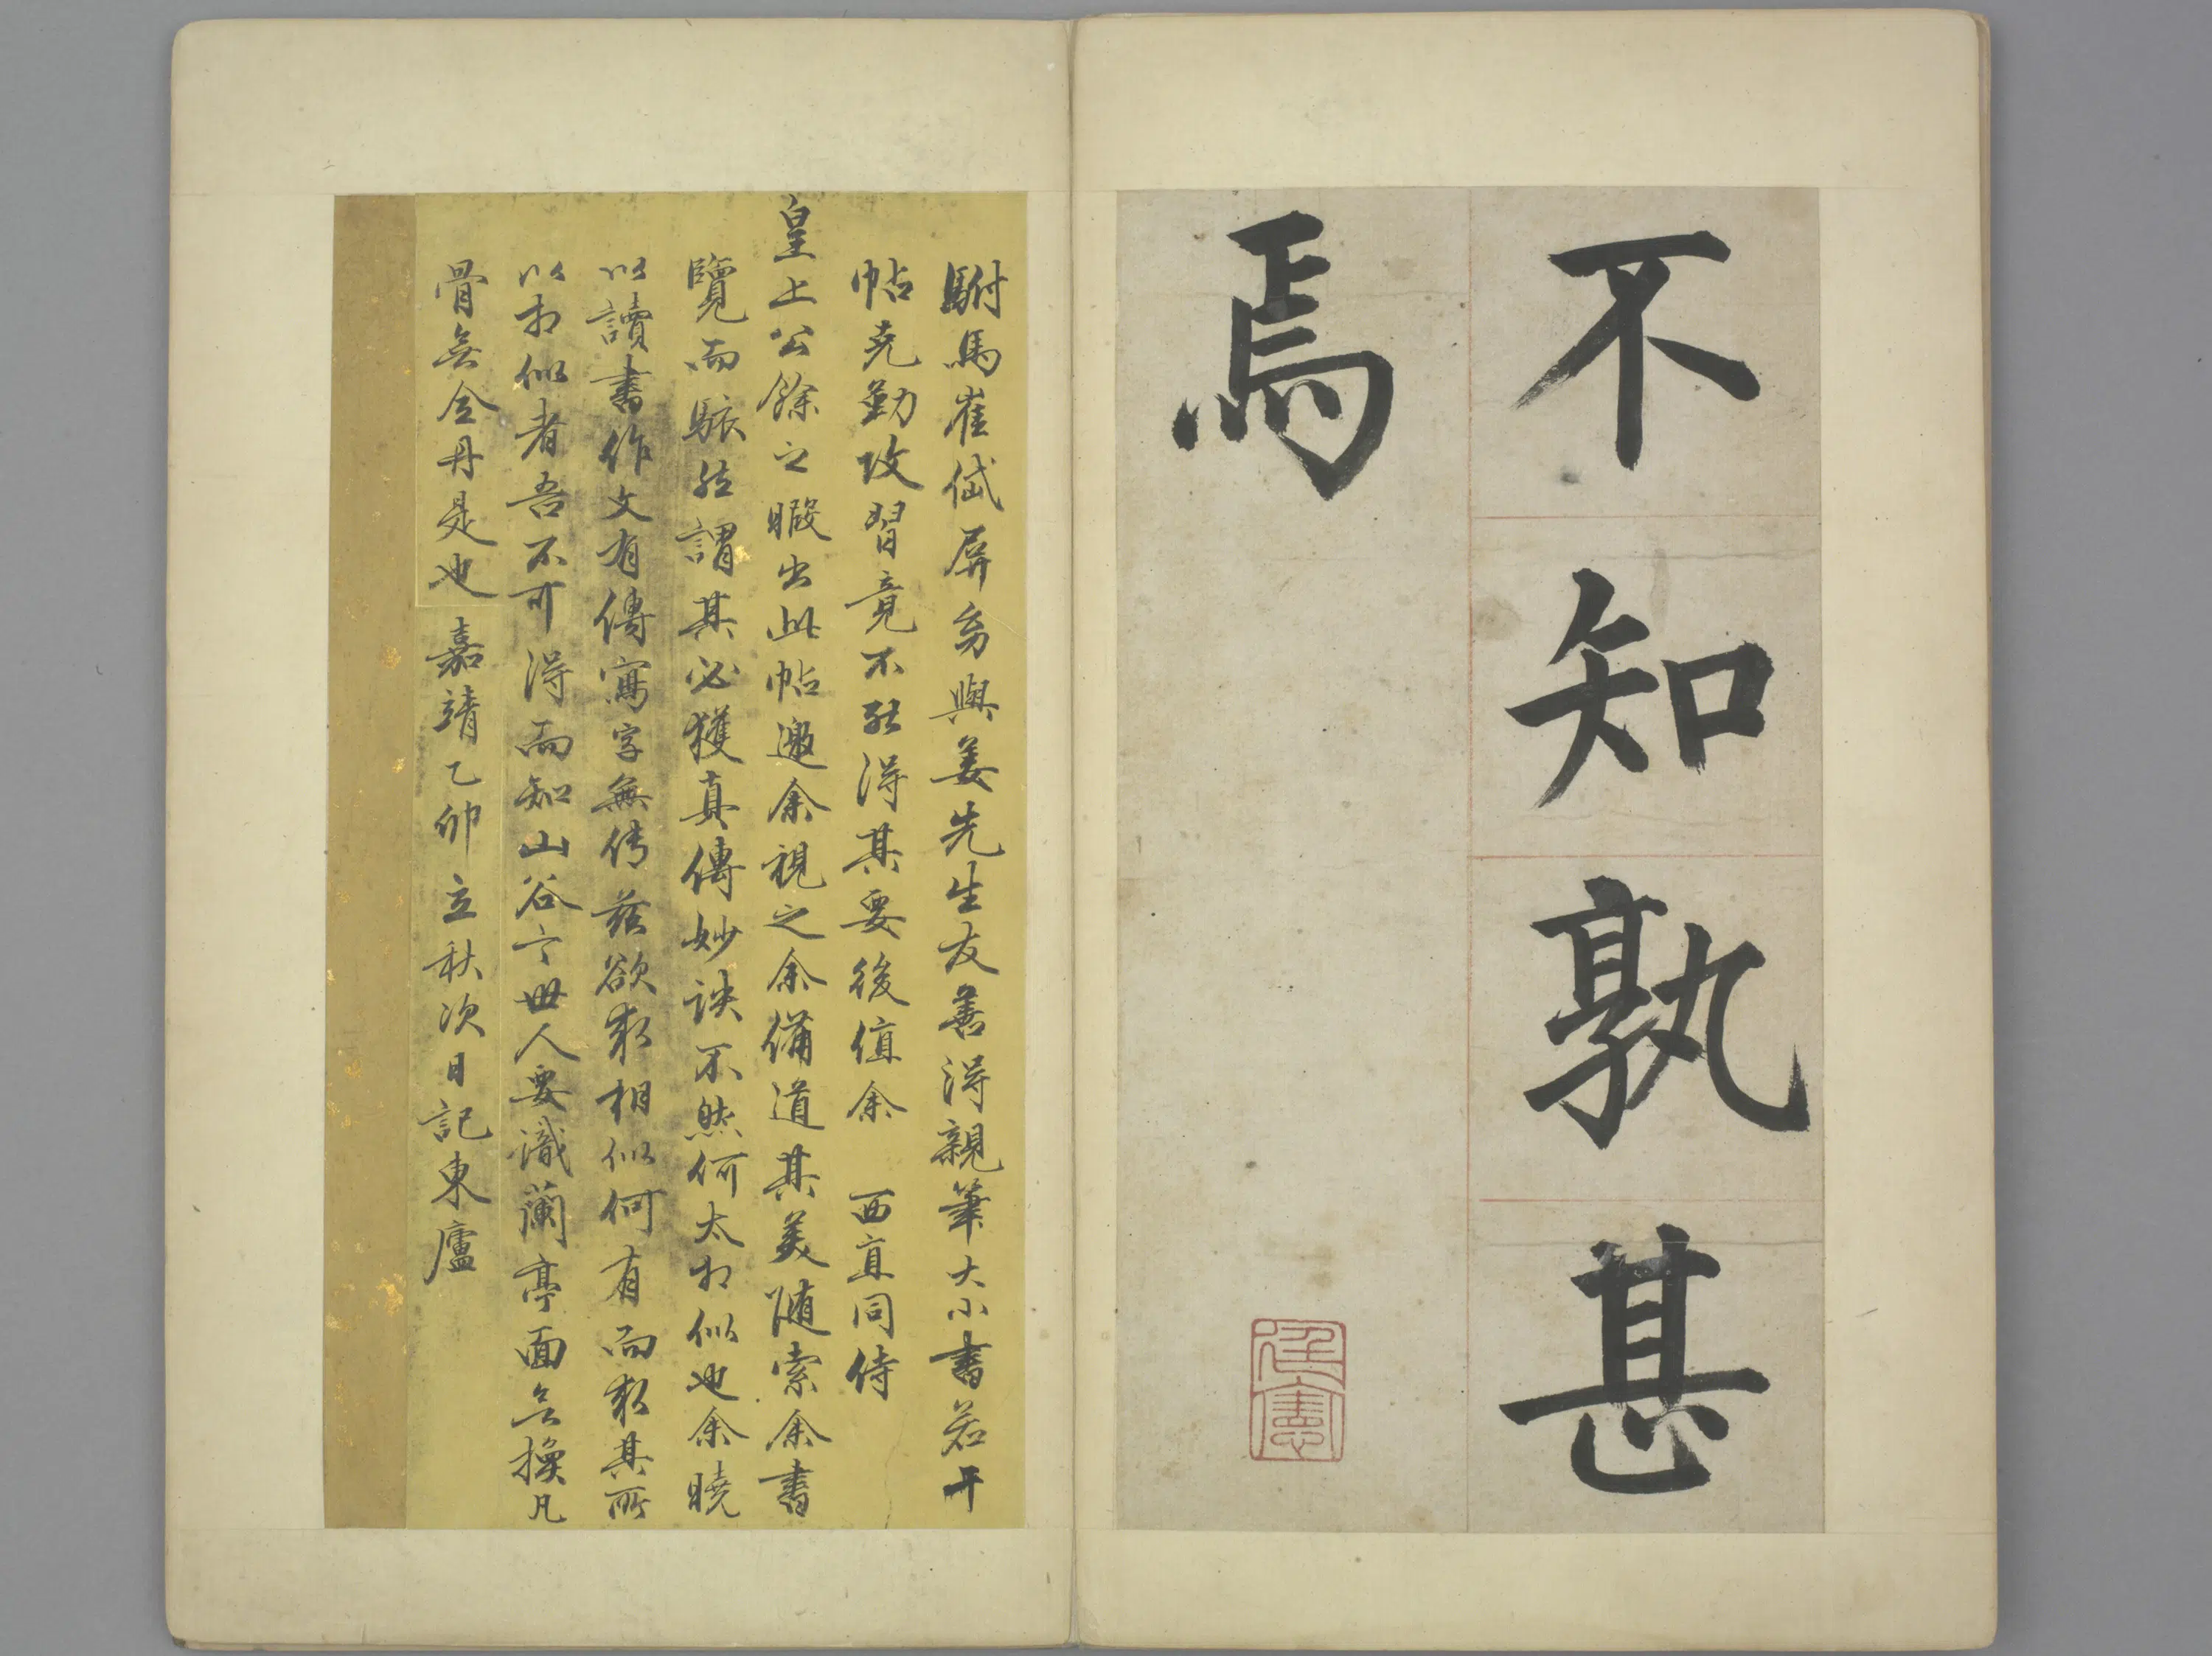 不知孰甚
焉
駙馬崔岱屏家與姜先生友善得親筆大小書若干
帖克勤攻習竟不能得其要後值余西直同侍
皇上公餘之暇出此帖邀余視之余備道其美随索余書
覽而駭然謂其必獲真傳妙訣不然何太相似也余曉
以讀書作文有傳寫字無传茲欲求相似何有而求其所
以相似者吾不可得而知山谷云世人要識蘭亭面無換凡
骨無金丹是也嘉靖乙卯立秋次日記東廬